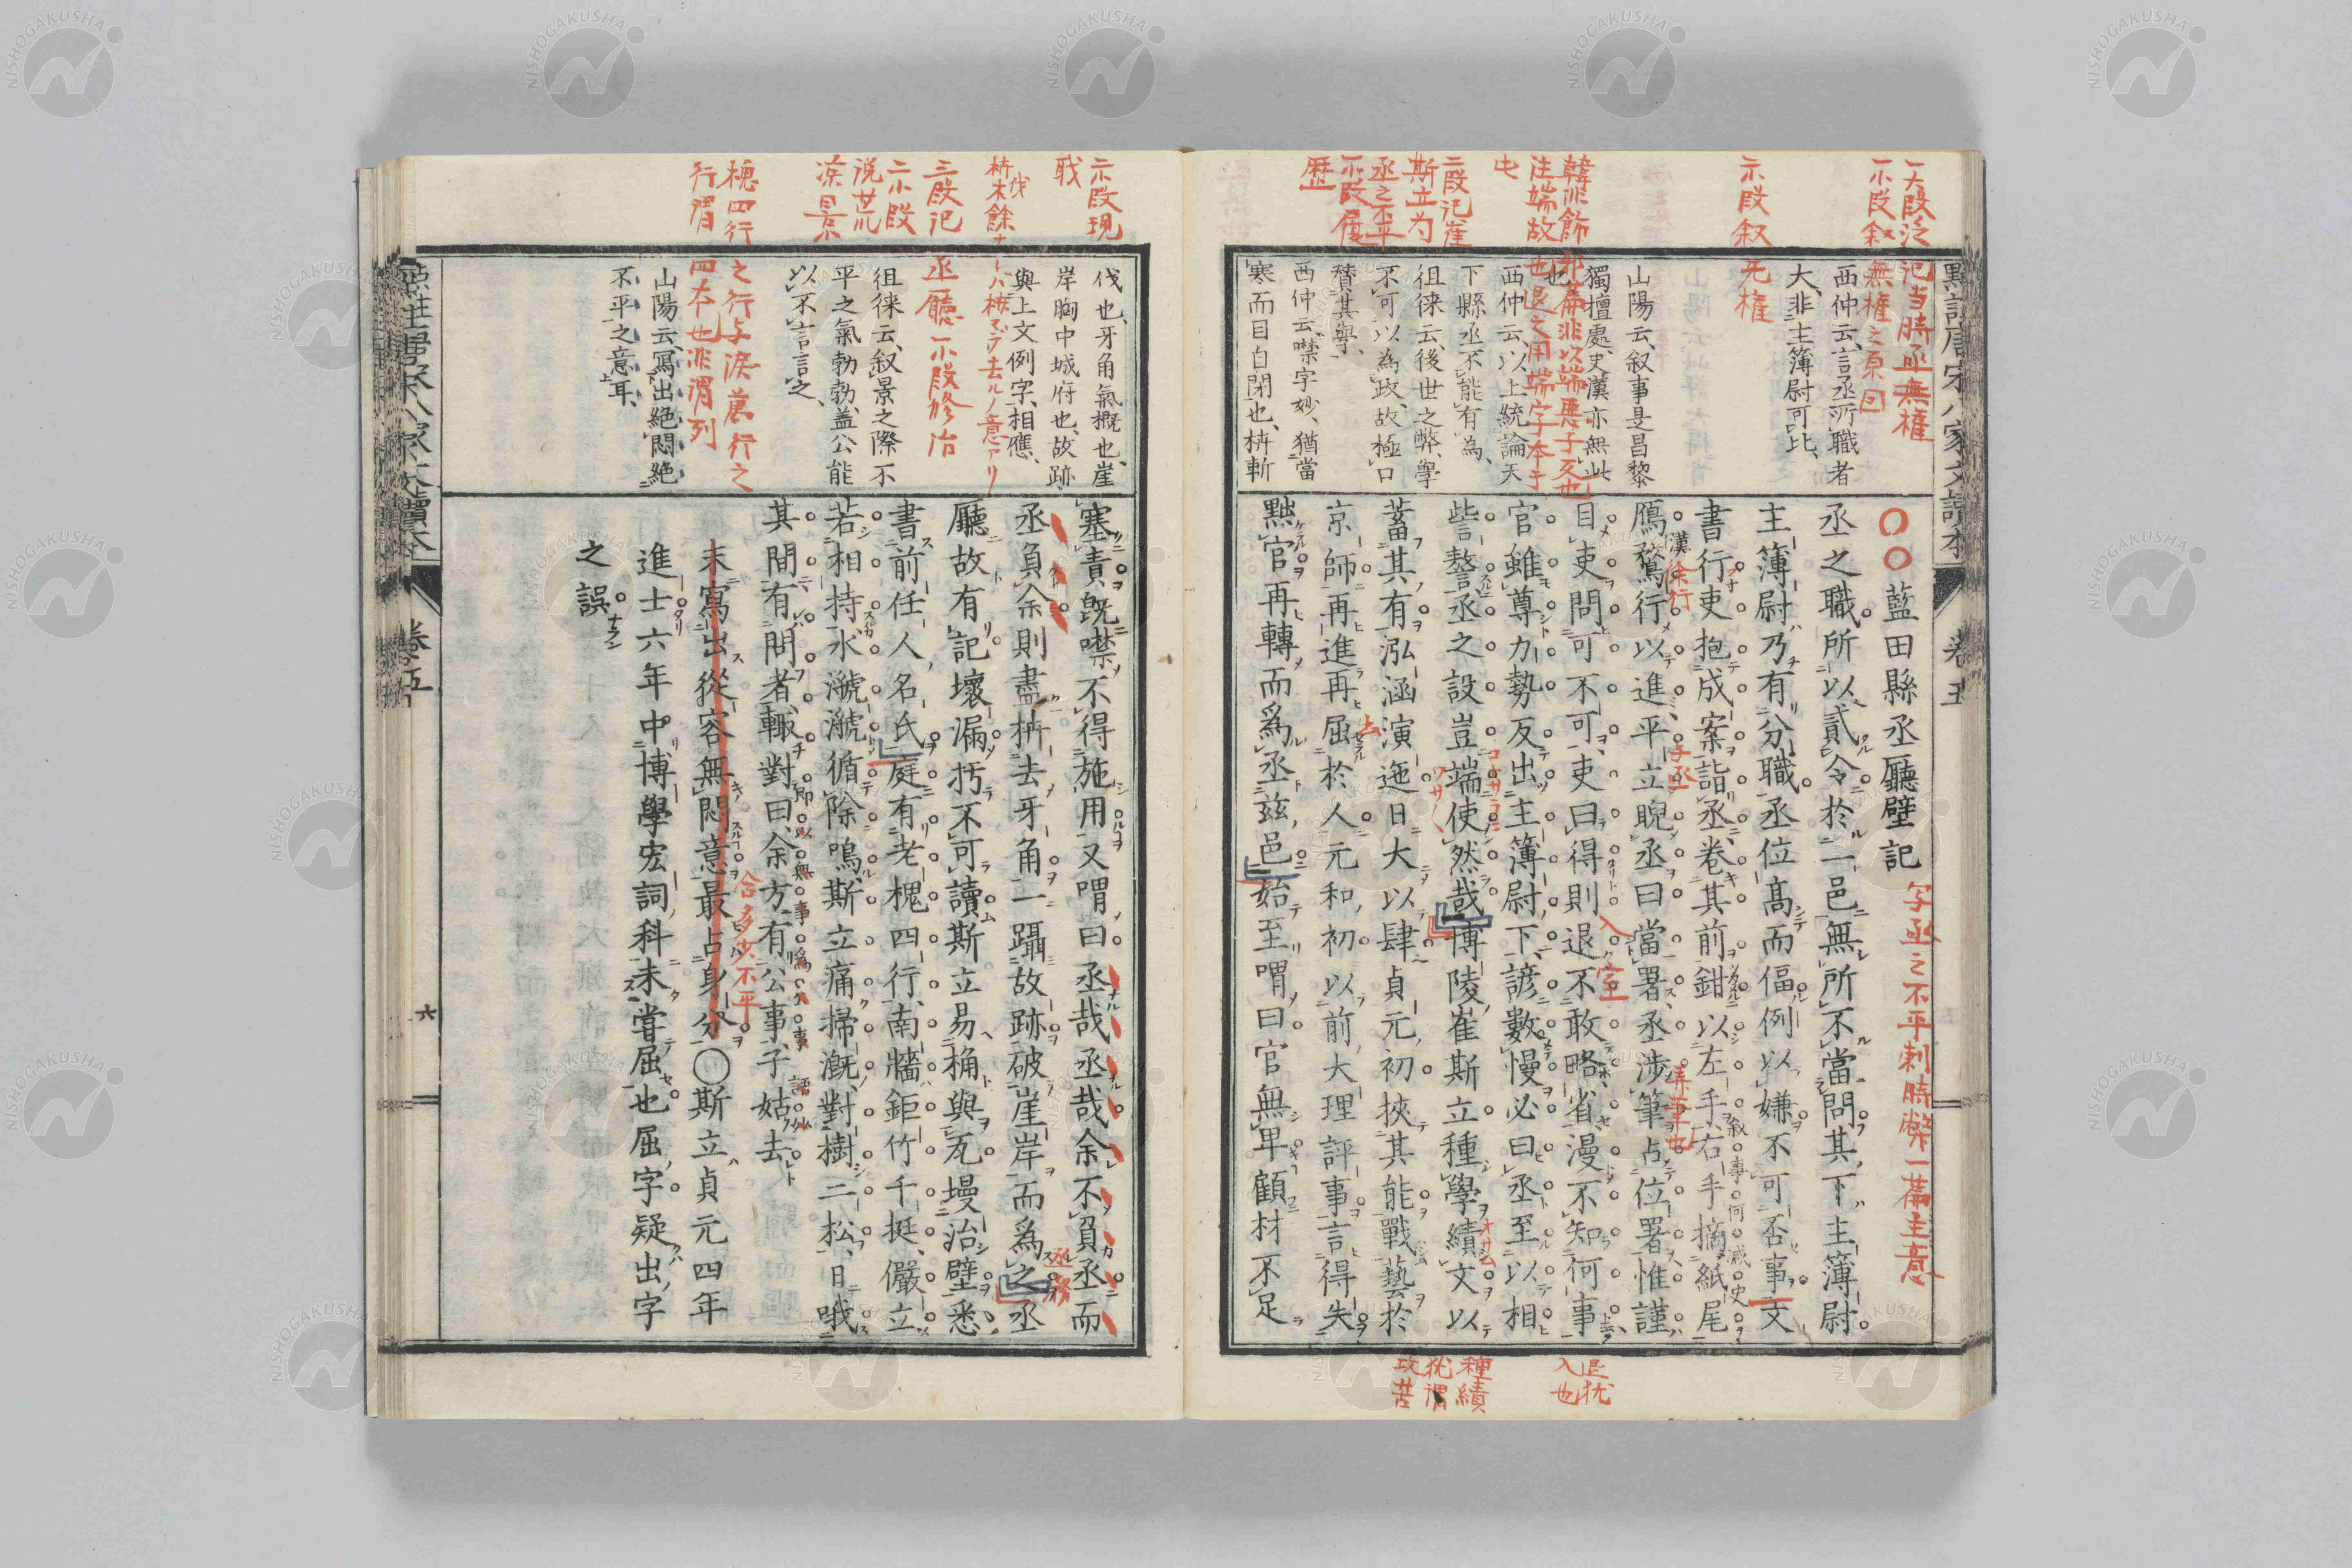 藍田縣丞廳壁記
丞之職所以貳令於一邑無所不當問其下主簿尉
主簿尉乃有分職丞位高而偪例以嫌不可否事文
書行吏抱成案詣丞卷其前鉗以左手右手摘紙尾
鴈鶩行以進平立睨丞曰當署丞涉筆占位署惟謹
目吏問可不可吏曰得則退不敢略省漫不知何事
官雖尊力勢反出主簿尉下諺數慢必曰丞至以相
訾謷丞之設豈端使然哉博陵崔斯立種學績文以
蓄其有泓涵演迤日大以肆貞元初挾其能戰藝於
京師再進再屈於人元和初以前大理評事言得失
黜官再轉而爲丞茲邑始至喟曰官無卑顧材不足
塞責既噤不得施用又喟曰丞哉丞哉余不負丞而
丞負余則盡枿去牙角一躡故跡破崖岸而爲之丞
廳故有記壞漏汚不可讀斯立易桷與瓦墁治壁悉
書前任人名氏庭有老槐四行南牆鉅竹千挺儼立
若相持水㶁㶁循除鳴斯立痛掃漑對樹二松日哦
其間有問者輒對曰余方有公事子姑去
末寫出從容無悶意最占身分○斯立貞元四年
進士六年中博學宏詞科未嘗屈也屈字疑出字
之誤
西仲云言丞所職者
大非主簿尉可比
山陽云叙事是昌黎
獨擅處史漢亦無此
也
西仲云以上統論天
下縣丞不能有為
徂徠云後世之弊學
不可以為政故極口
贊其學
西仲云噤字妙猶當
寒而目自閉也枿斬
伐也牙角氣概也崖
岸胸中城府也故跡
與上文例字相應
徂徠云叙景之際不
平之氣勃勃蓋公能
以不言言之
山陽云寫出絶悶絶
不平之意耳
一大段泛記当時丞無権
一小段叙無権之原因
二小段叙无権
二段記崔斯立为丞之不平
一小段履歴
二小段現戝
三段記丞廳一小段修治
二小段説荒涼景
槐四行之行与涙萬行之
行謂四本也非謂列
字丞之不平刺時弊一篇主意
合多少不平
種績
犹謂
攻苦
退犹
入也
卷五
卷五
六
NISHOGAKUSHA